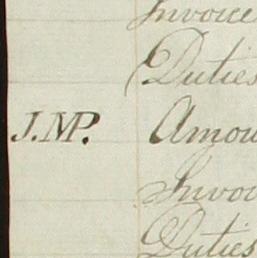 Invoice
Duties
J.MP. Amou
Invoi
Duties